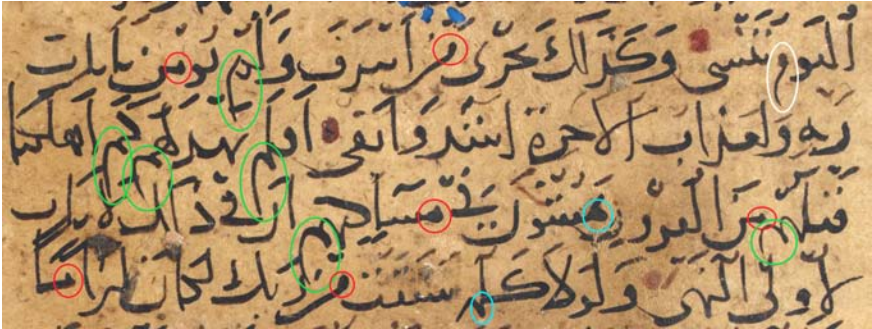 اليوم تنسى وكذلك نجزى من اسرف ولم يومن بايات
ربه ولعذاب الاخرة اشد وابقى افلم يهد لهم كم اهلكنا
قبلهم من القرون يمشون فى مساكنهم ان فى ذلك لايات
لاولى النهى ولولا كلمة سبقت من ربك لكان لزاما